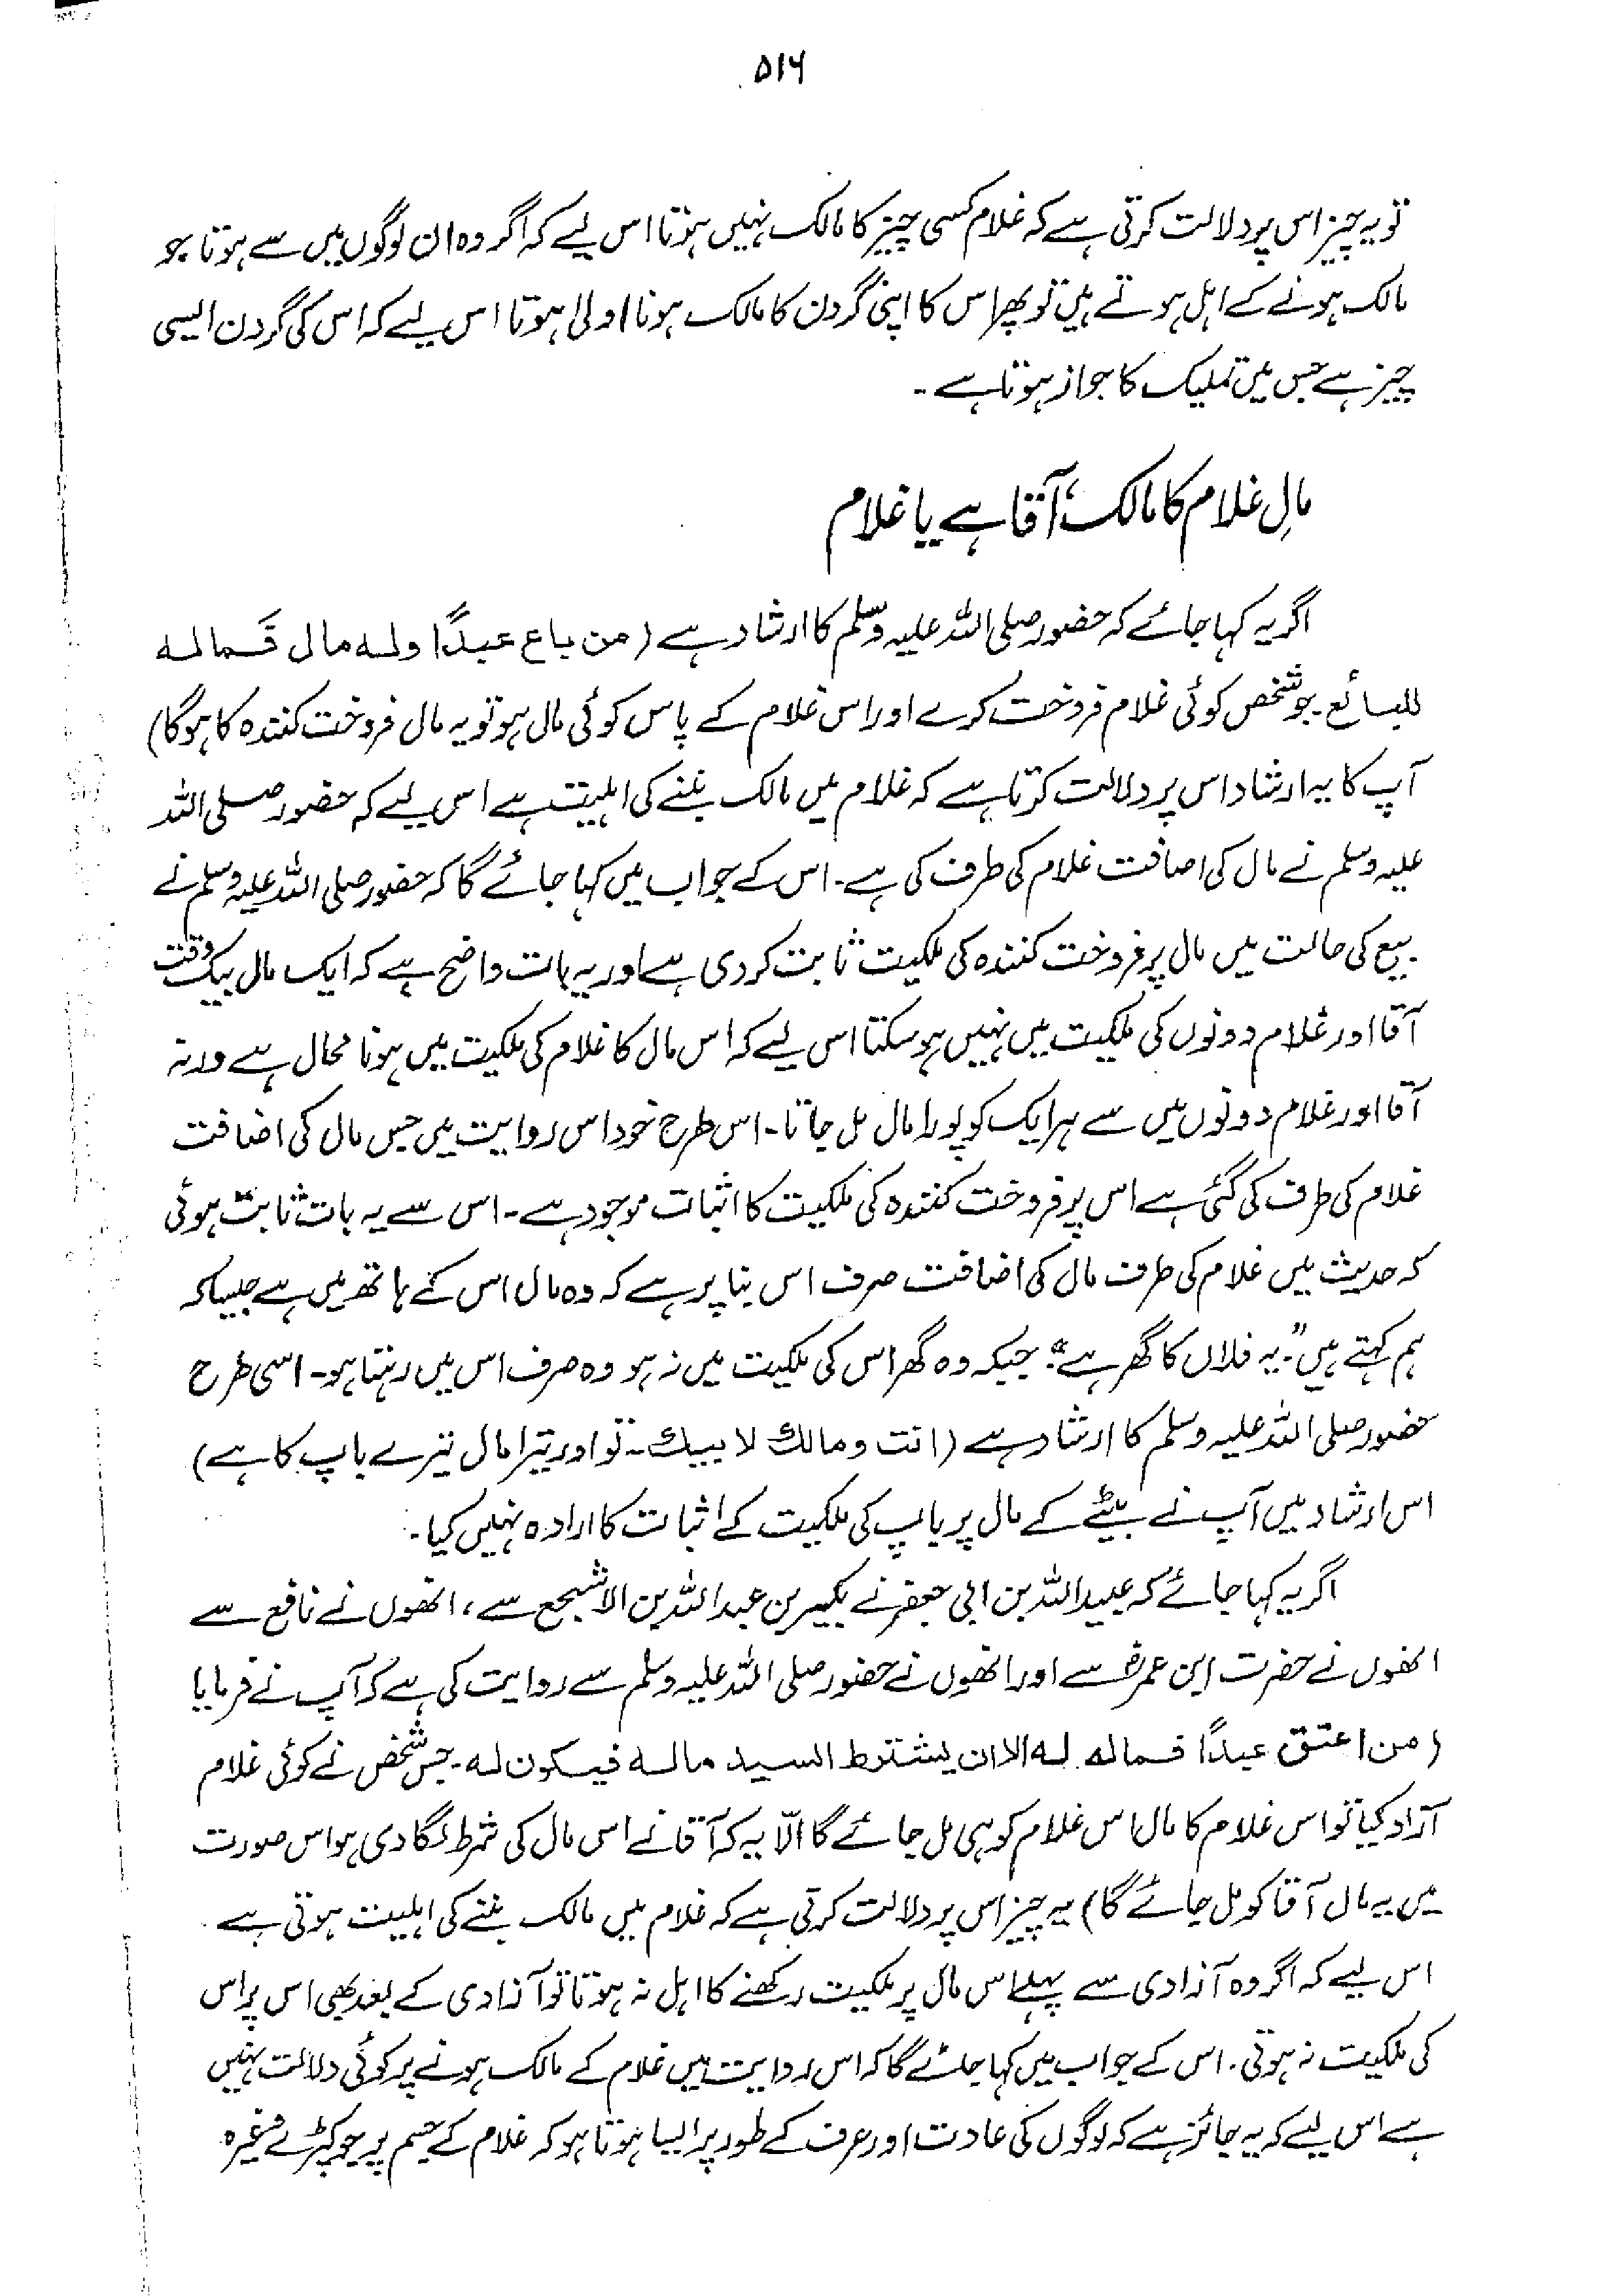 ۵۱۶
تو یہ چیز اس پر دلالت کرتی ہے کہ غلام کسی چیز کا مالک نہیں ہوتا اس لیے کہ اگر وہ ان لوگوں میں سے ہوتا جو
مالک ہونے کے اہل ہوتے ہیں تو پھر اس کا اپنی گردن کا مالک ہونا اولیٰ ہوتا اس لیے کہ اس کی گردن ایسی
چیز ہے جس میں تملیک کا جواز ہوتا ہے ۔
مالِ غلام کا مالک، آقا ہے یا غلام
اگر یہ کہا جائے کہ حضور صلی اللہ علیہ وسلم کا ارشاد ہے (من باع عبدًا ولہ مال فمالہ
للبائع۔ جو شخص کوئی غلام فروخت کرے اور اس غلام کے پاس کوئی مال ہو تو یہ مال فروخت کنندہ کا ہوگا)
آپ کا یہ ارشاد اس پر دلالت کرتا ہے کہ غلام میں مالک بننے کی اہلیت ہے اس لیے کہ حضور صلی اللہ
علیہ وسلم نے مال کی اضافت غلام کی طرف کی ہے۔ اس کے جواب میں کہا جائے گا کہ حضور صلی اللہ علیہ وسلم نے
بیع کی حالت میں مال پر فروخت کنندہ کی ملکیت ثابت کر دی ہے اور یہ بات واضح ہے کہ ایک مال بیک وقت
آقا اور غلام دونوں کی ملکیت میں نہیں ہو سکتا اس لیے کہ اس مال کا غلام کی ملکیت میں ہونا محال ہے ورنہ
آقا اور غلام دونوں میں سے ہر ایک کو پورا مال مل جاتا۔ اس طرح خود اس روایت میں جس مال کی اضافت
غلام کی طرف کی گئی ہے اس پر فروخت کنندہ کی ملکیت کا اثبات موجود ہے۔ اس سے یہ بات ثابت ہوئی
کہ حدیث میں غلام کی طرف مال کی اضافت صرف اس بنا پر ہے کہ وہ مال اس کے ہاتھ میں ہے جیسا کہ
ہم کہتے ہیں ”یہ فلاں کا گھر ہے“ جبکہ وہ گھر اس کی ملکیت میں نہ ہو وہ صرف اس میں رہتا ہو۔ اسی طرح
حضور صلی اللہ علیہ وسلم کا ارشاد ہے (انت ومالك لابيك۔ تو اور تیرا مال تیرے باپ کا ہے)
اس ارشاد میں آپ نے بیٹے کے مال پر باپ کی ملکیت کے اثبات کا ارادہ نہیں کیا۔
اگر یہ کہا جائے کہ عبیداللہ بن ابی جعفر نے بکیر بن عبداللہ بن الاشجع سے، انھوں نے نافع سے
انھوں نے حضرت ابن عمرؓ سے اور انھوں نے حضور صلی اللہ علیہ وسلم سے روایت کی ہے کہ آپ نے فرمایا
(من اعتق عبدًا فمالہ لہ الا ان یشترط السید مالہ فیکون لہ۔ جس شخص نے کوئی غلام
آزاد کیا تو اس غلام کا مال اس غلام کو ہی مل جائے گا الّا یہ کہ آقا نے اس مال کی شرط لگا دی ہو اس صورت
میں یہ مال آقا کو مل جائے گا) یہ چیز اس پر دلالت کرتی ہے کہ غلام میں مالک بننے کی اہلیت ہوتی ہے
اس لیے کہ اگر وہ آزادی سے پہلے اس مال پر ملکیت رکھنے کا اہل نہ ہوتا تو آزادی کے بعد بھی اس پر اس
کی ملکیت نہ ہوتی۔ اس کے جواب میں کہا جائے گا کہ اس روایت میں غلام کے مالک ہونے پر کوئی دلالت نہیں
ہے اس لیے کہ یہ جائز ہے کہ لوگوں کی عادت اور عرف کے طور پر ایسا ہوتا ہو کہ غلام کے جسم پر جو کپڑے وغیرہ